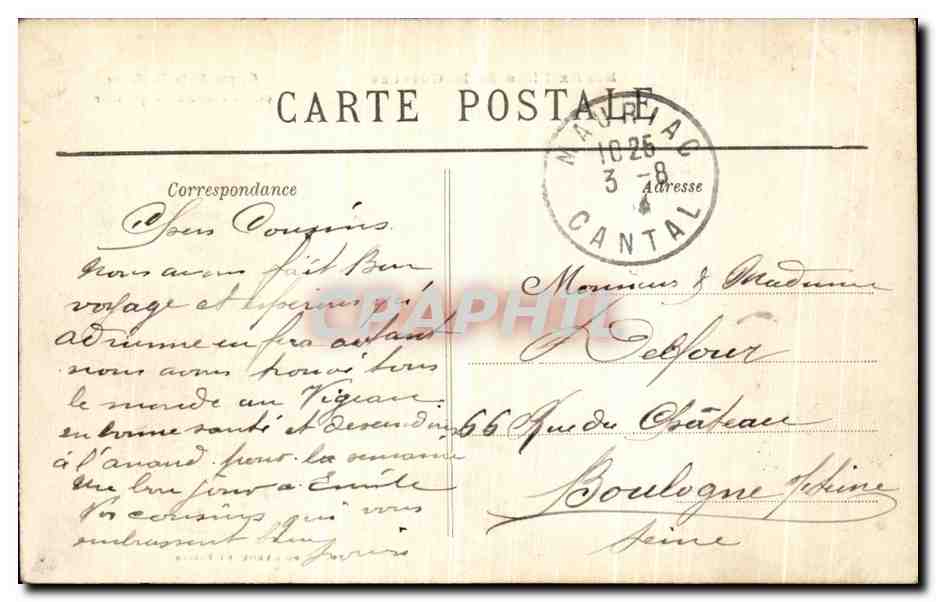 CARTE POSTALE
MAURIAC
10 25
3 -8
4
CANTAL
Correspondance
Adresse
Chers Cousins
Nous avons fait Bon
voyage et espérons qu'
adrienne en fera autant
nous avons trouvé tous
le monde au Vigean
en bonne santé et
à l' pour la semaine
un bon jour a Emile
Vos cousins qui vous
embrassent bien
Monsieur & Madame
Delfour
66 Rue du Château
Boulogne s/Seine
Seine
CPAPHIL